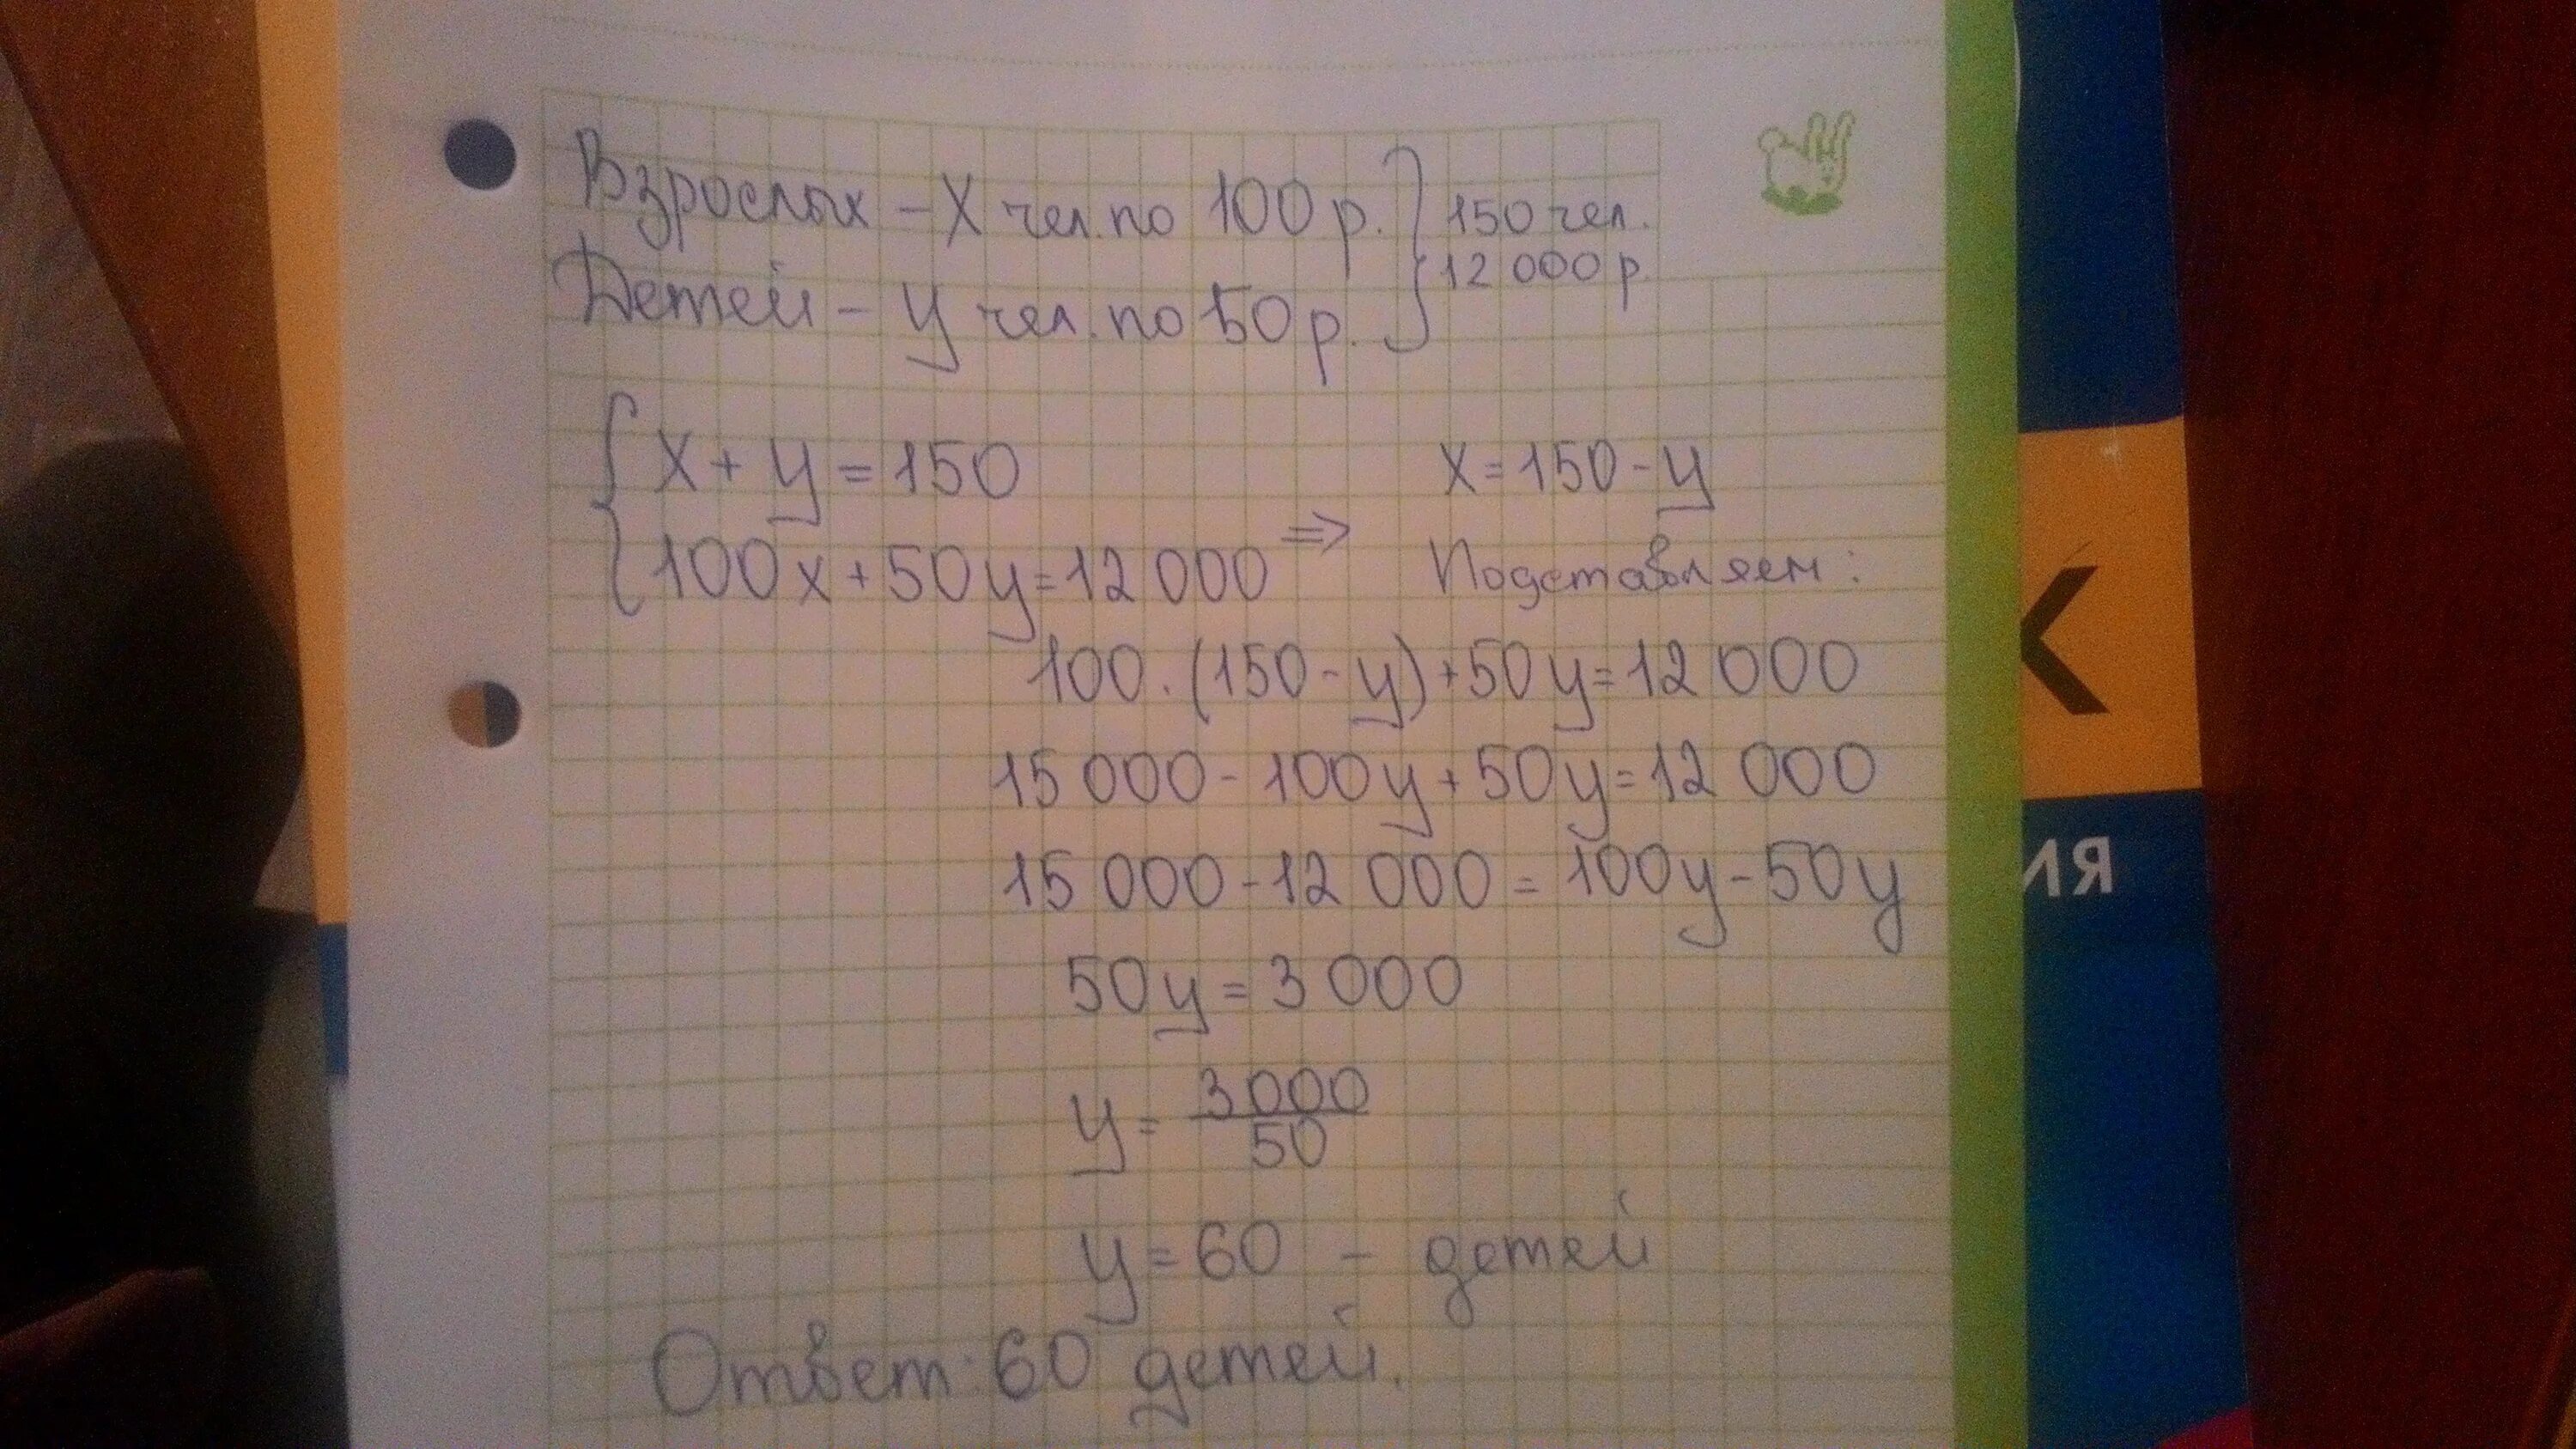 Взрослых – X чел. по 100 р. } 150 чел.
Детей – y чел. по 50 р. } 12 000 р.
x + y = 150
x = 150 - y
100x + 50y = 12 000 ⇒
Подставляем:
100 · (150 - y) + 50y = 12 000
15 000 - 100y + 50y = 12 000
15 000 - 12 000 = 100y - 50y
50y = 3 000
y = 3000/50
y = 60 – детей
Ответ: 60 детей.
К
ИЯ